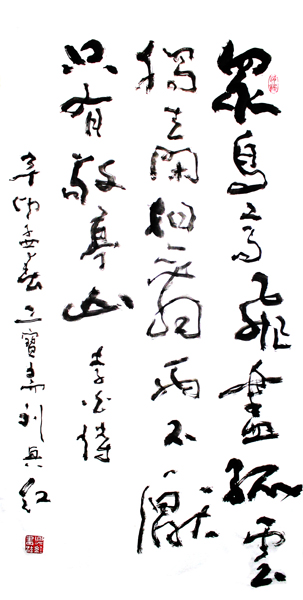 眾鳥高飛盡孤雲
獨去閑相看兩不厭
只有敬亭山 李白詩
辛卯孟春 寶齋 紅